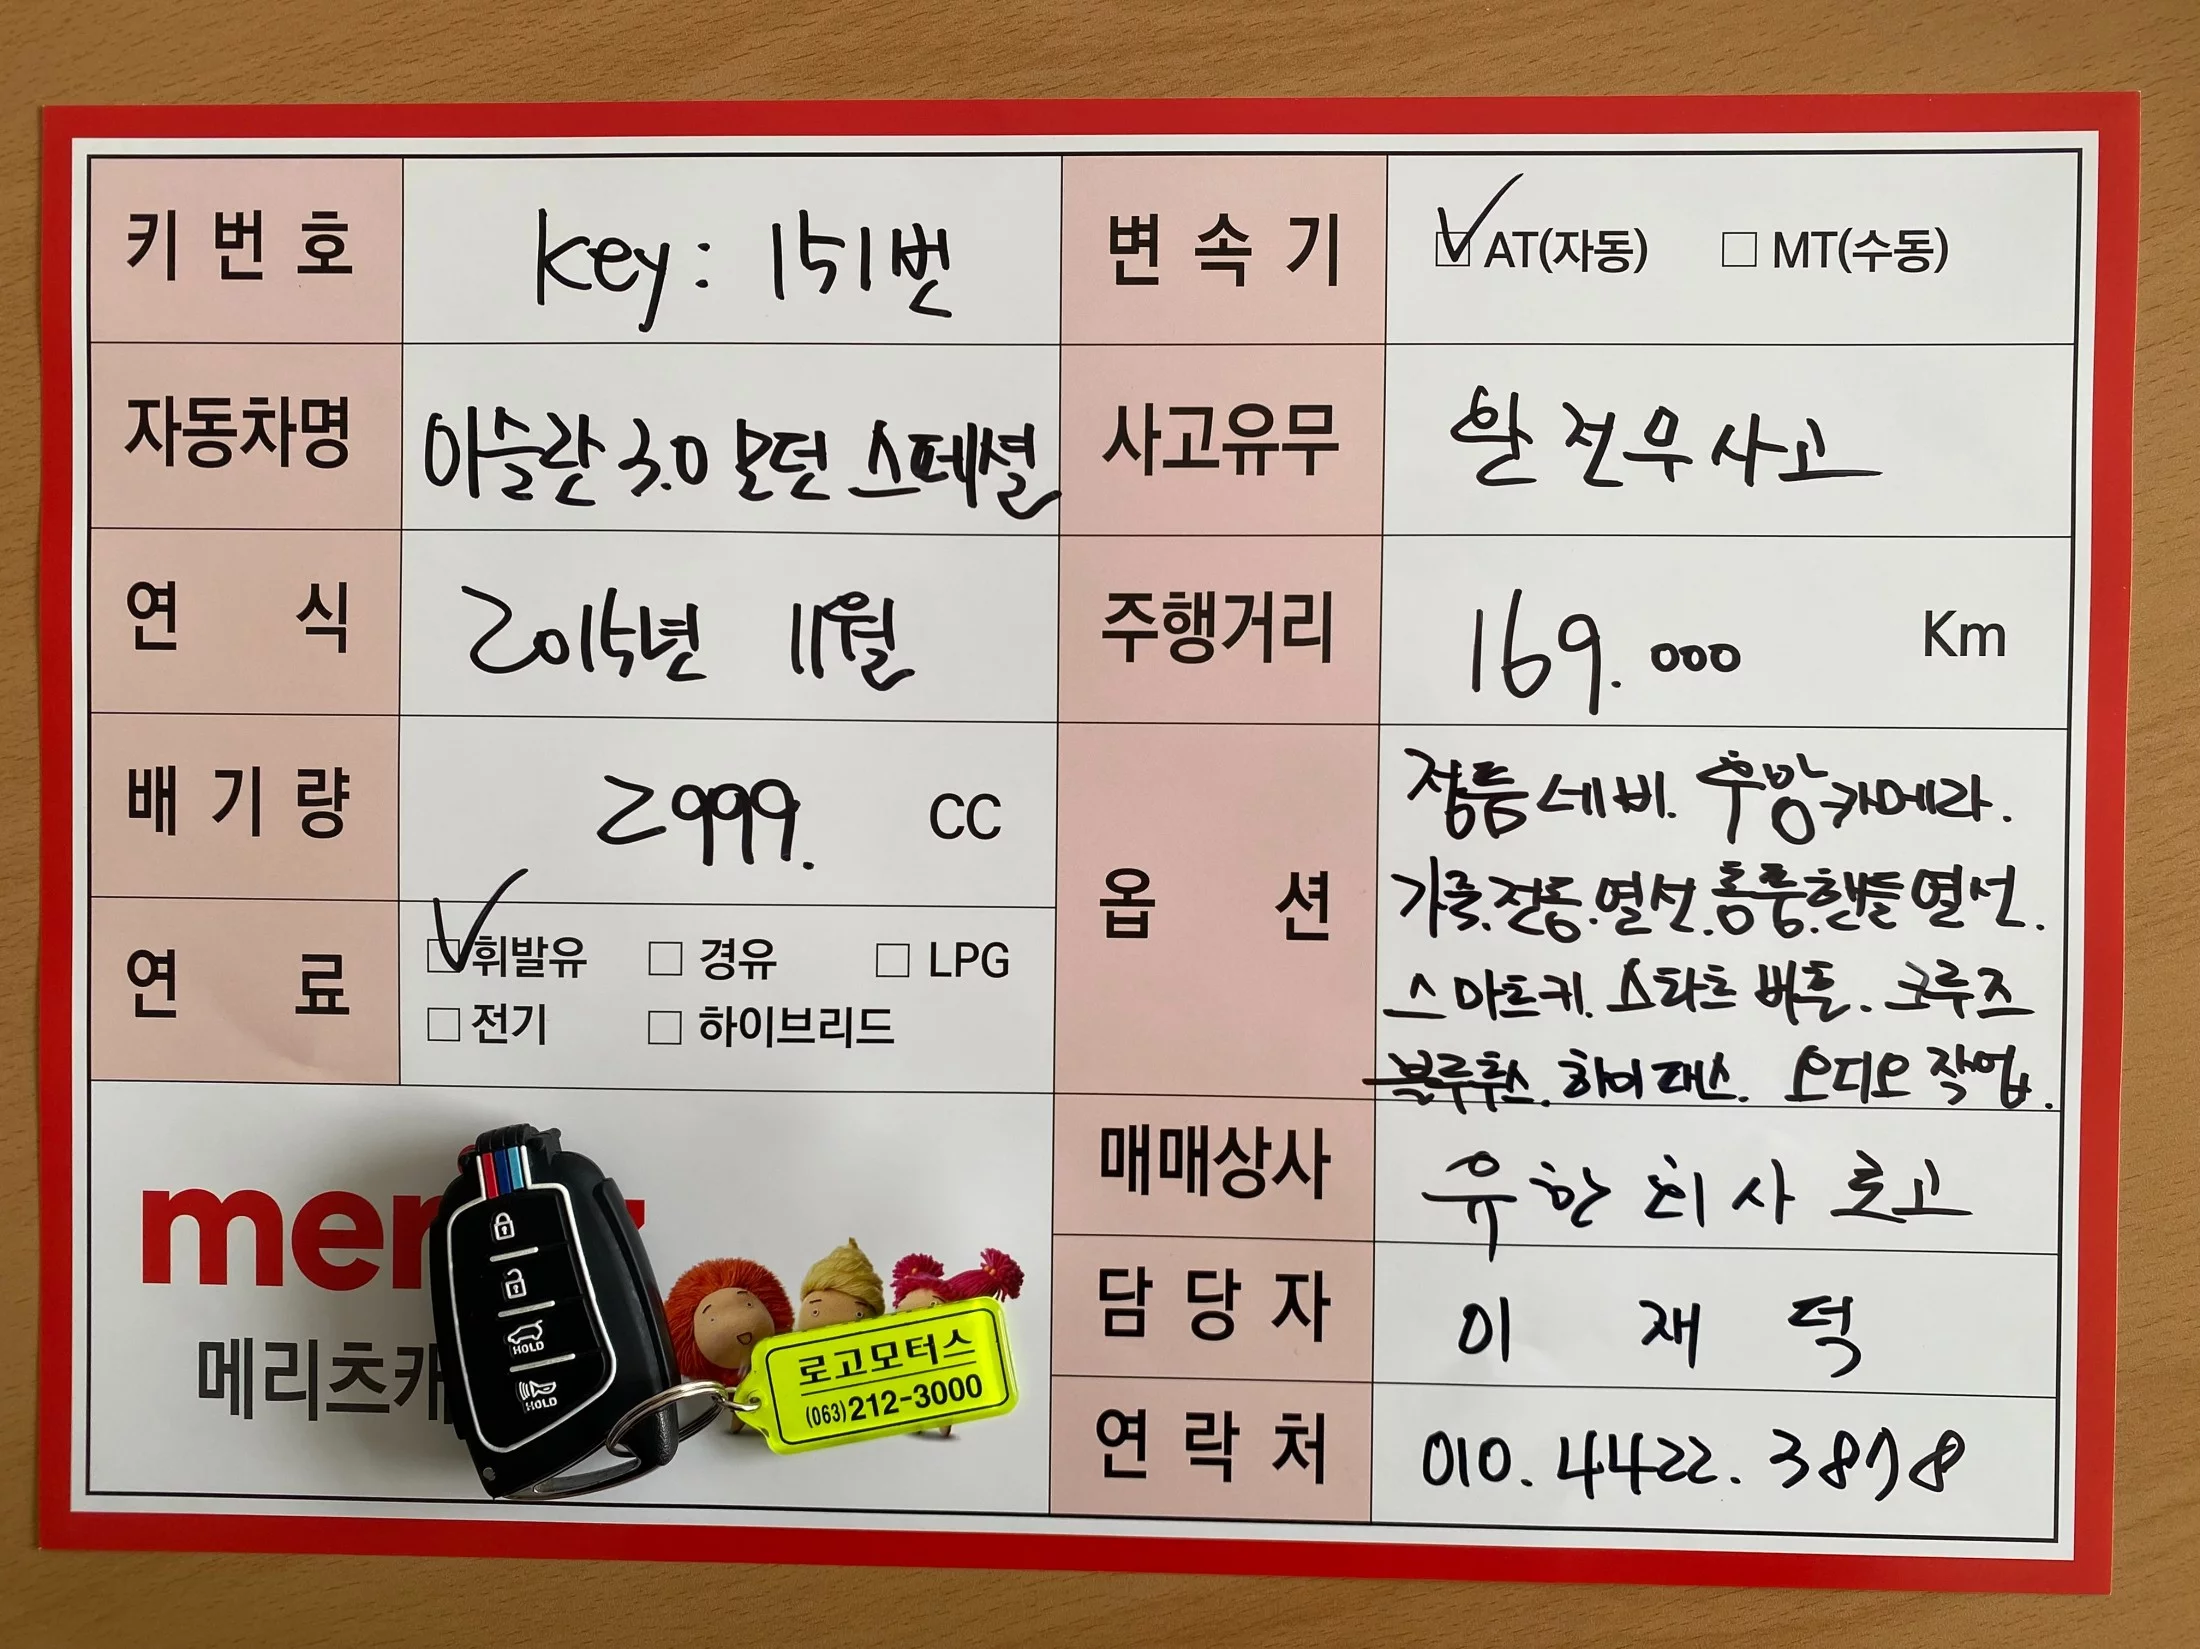 키번호 key: 151번
자동차명 아슬란 3.0 모던 스페셜
연식 2015년 11월
배기량 2999. CC
연료 휘발유 경유 LPG
전기 하이브리드
변속기 AT(자동) MT(수동)
사고유무 완전무사고
주행거리 169.000 Km
옵션 정품네비. 후방카메라.
가죽.전동.열선.통풍.핸들열선.
스마트키. 스타트 버튼. 크루즈
블루투스. 하이패스. 오디오 작업.
매매상사 유한회사 로고
담당자 이재덕
연락처 010.4422.3878
메리츠캐
HOLD
HOLD
로고모터스
(063)212-3000